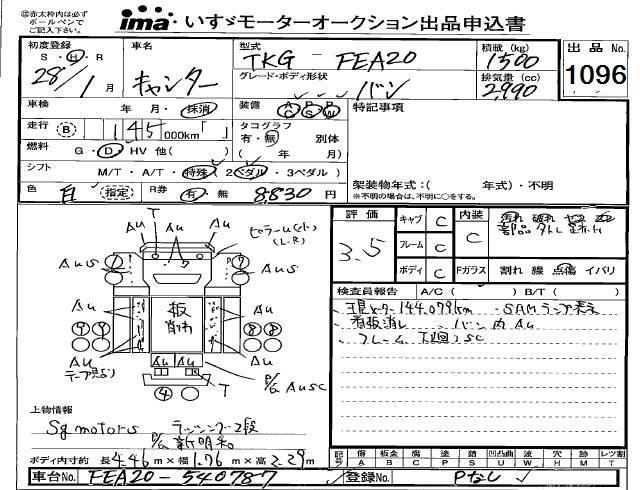 ㊟赤太枠内は必ず
ボールペンで
ご記入下さい。
ima いすゞモーターオークション出品申込書
初度登録
S・H・R
28年1月
車名
キャンター
型式
TKG - FEA20
グレード・ボディ形状
バン
積載 (kg)
1500
排気量 (cc)
2,990
出品No.
1096
車検 年 月・抹消
装備 AC PS PW
特記事項
走行 B 145000km「 」
タコグラフ
有・無 別体
( 年 月)
燃料 G・D・HV 他( )
シフト M/T・A/T・特殊 2ペダル・3ペダル)
架装物年式:( 年式)・不明
※不明の場合は、不明に○をする。
色 白 指定 R券 有・無 8,830円
評価 3.5
キャブ C
フレーム C
ボディ C
内装 C
Fガラス 割れ 線 点傷 イバリ
T
Au Au
ピラーム
(L・R)
AuS
Au
板
削れ
Au
テープ残り
Au Au
P/G AuSC
T
4
検査員報告 A/C( ) B/T( )
現メーター144,079km ・SAMランプ表示
看板消し バン内 Au
フレーム下廻りSC
上物情報
Sg motors ラッシング2段
P/G 新明和
ボディ内寸約 長4.46m×幅1.76m×高2.29m
記号 傷A 板金B 腐C 塗P 錆S 凹凸曲U 波W 穴H 跡M レツ割T
車台No. FEA20-540787
登録No. Pなし